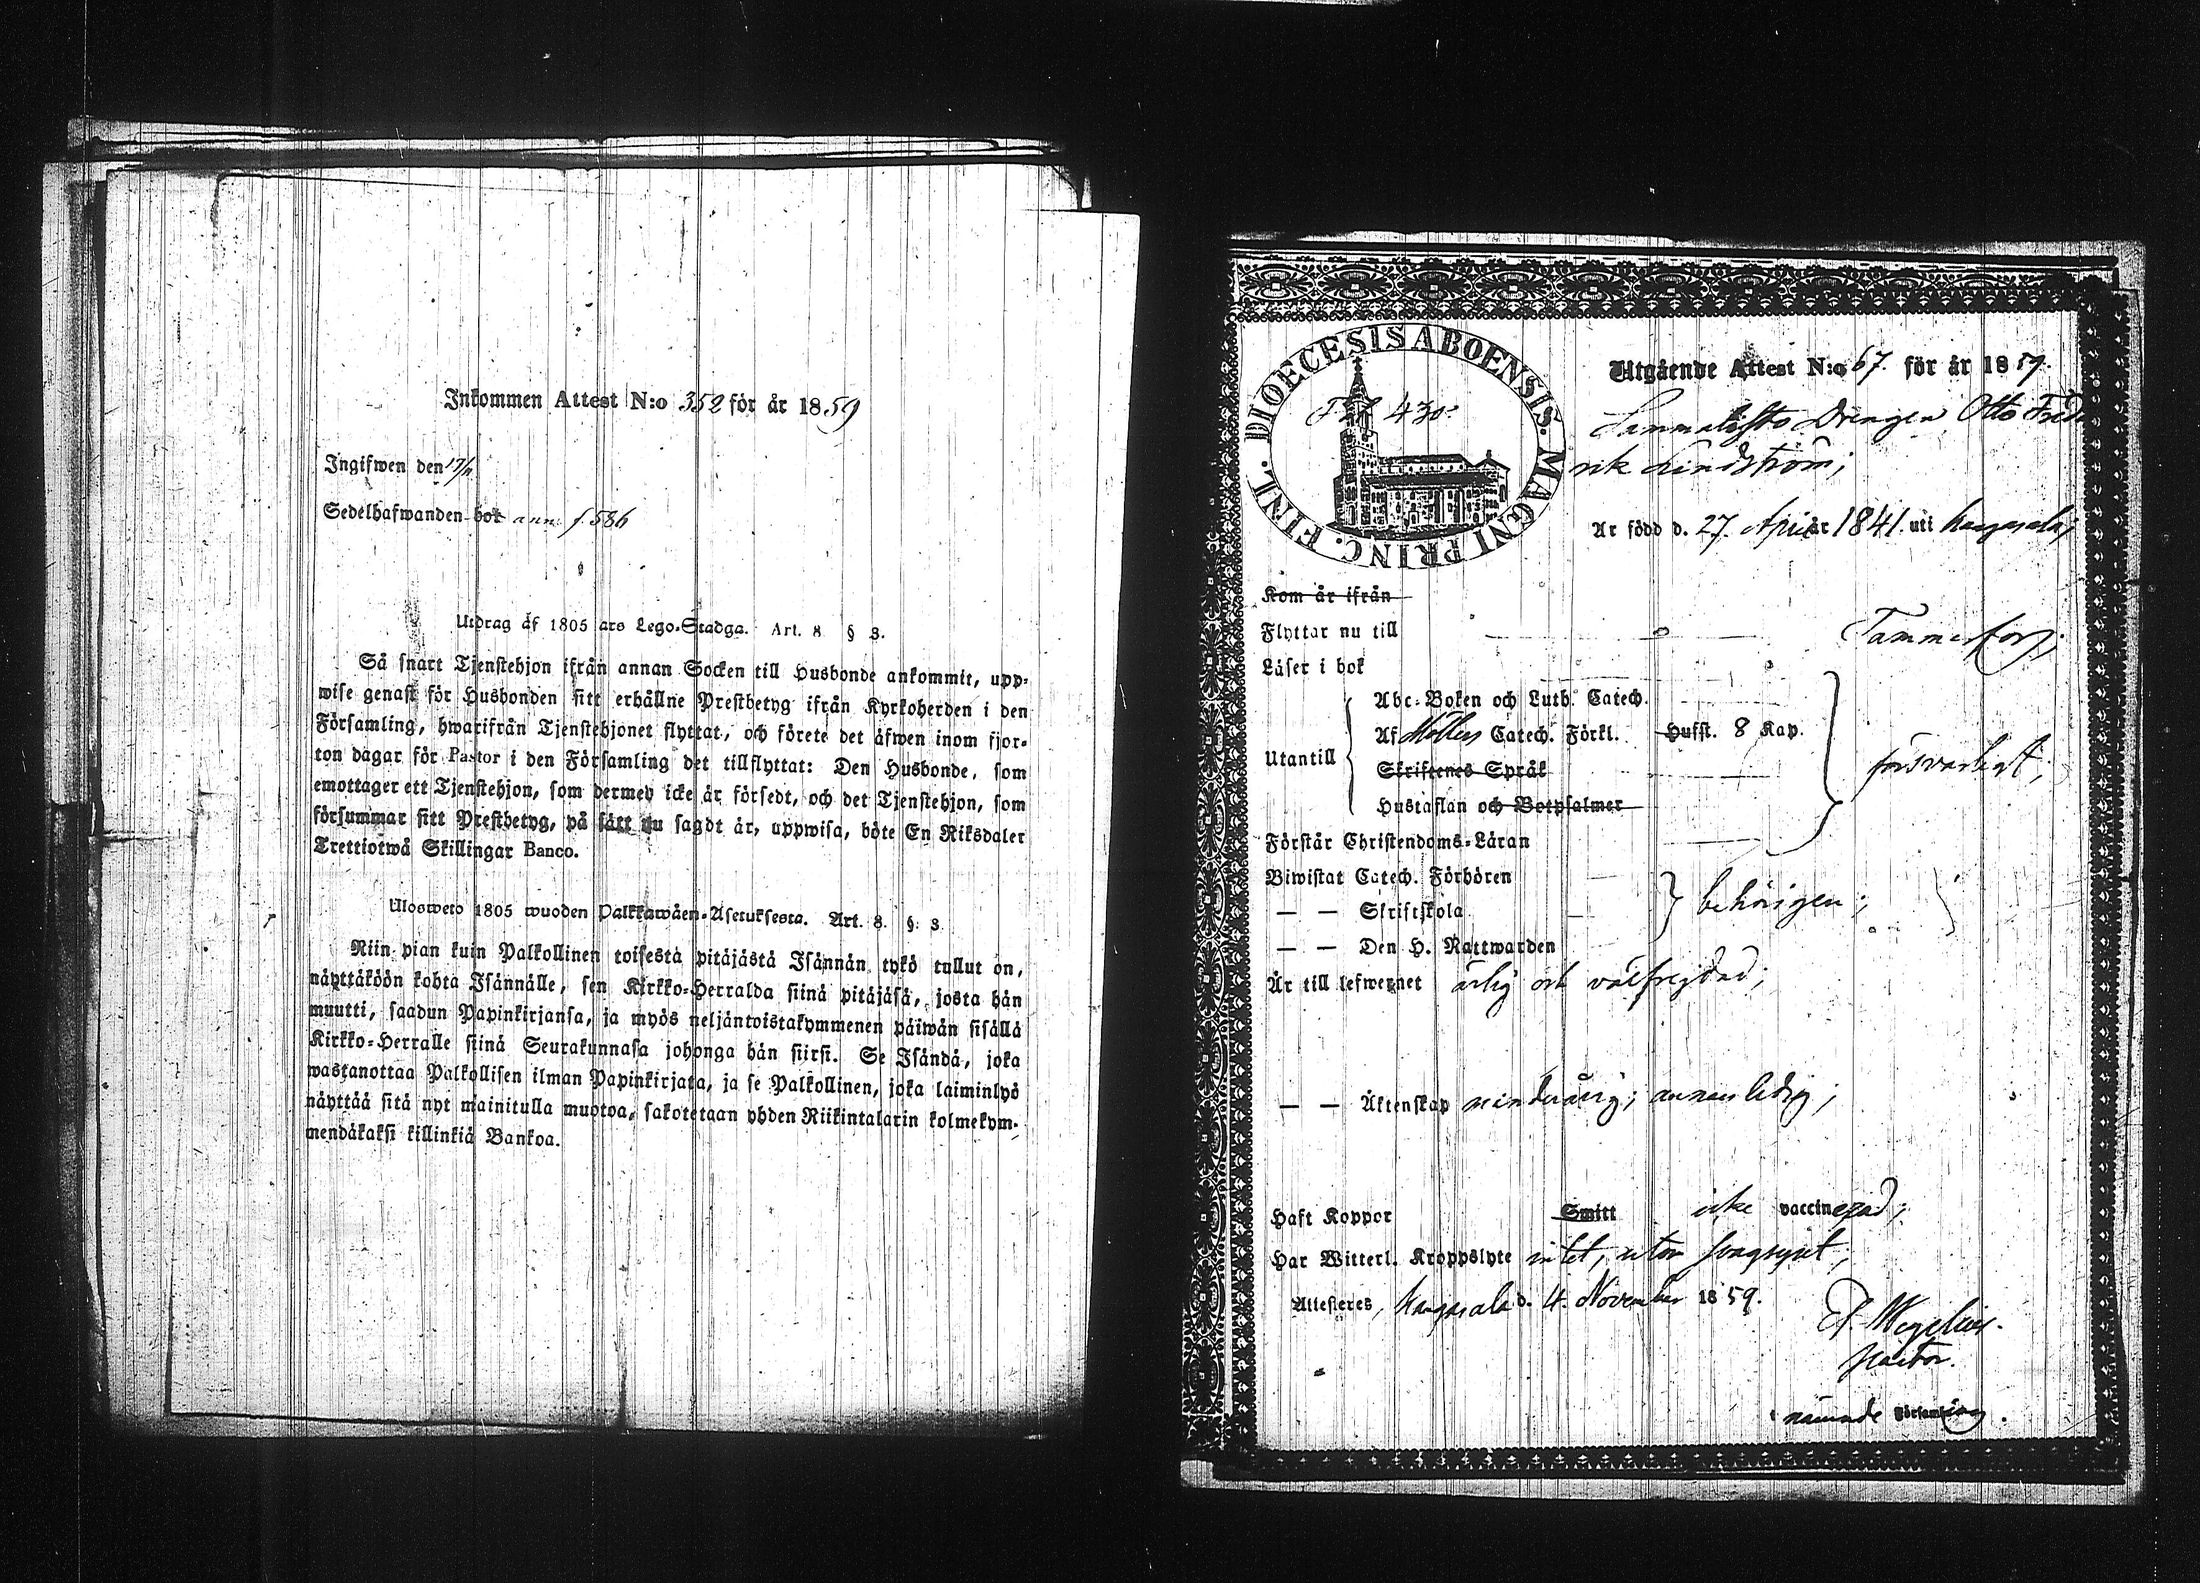 Inkommen Attest N:o 352 för år 1859
Ingifwen den 17/11
Sedelhafwanden bok ann. f. 586
Utdrag af 1805 ars Lego-Stadga. Art. 8 § 3.
Så snart Tjenstehjon ifrån annan Socken till Husbonde ankommit, upp-
wise genast för Husbonden sitt erhållne Prestbetyg ifrån Kyrkoherden i den
Församling, hwarifrån Tjenstehjonet flyttat, och förete det äfwen inom fjor-
ton dagar för Pastor i den Församling det tillflyttat: Den Husbonde, som
emottager ett Tjenstehjon, som dermed icke är försedt, och det Tjenstehjon, som
försummar sitt Prestbetyg, på sätt nu sagdt är, uppwisa, böte En Riksdaler
Trettiotwå Skillingar Banco.
Ulosweto 1805 wuoden Palkkawäen-Asetuksesta. Art. 8. §. 3
Niin pian kuin Palkollinen toisesta pitäjästä Isännän tykö tullut on,
näyttäköön kohta Isännälle, sen Kirkko-Herralda siinä pitäjäsä, josta hän
muutti, saadun Papinkirjansa, ja myös neljäntoistakymmenen päiwän sisällä
Kirkko-Herralle siinä Seurakunnasa johonga hän siirsi. Se Isändä, joka
wastanottaa Palkollisen ilman Papinkirjata, ja se Palkollinen, joka laiminlyö
näyttää sitä nyt mainitulla muotoa, sakotetaan yhden Riikintalarin kolmekym-
mendäkaksi killinkiä Bankoa.
FINL. DIOECESIS ABOENSIS. MAGNI PRINC.
430.
Utgående Attest N:o 67. för år 1859.
Drengen, Otto Fred
rik Lindström;
Är född d. 27. April år 1841. uti Kangasala;
Kom år ifrån
Flyttar nu till Tammerfors;
Läser i bok
Abc-Boken och Luth. Catech.
Af Möllers Catech. Förkl. Hufst. 8 Kap.
Utantill försvarligt;
Skriftenes Språk
Hustaflan och Botpsalmer
Förstår Christendoms-Läran
Biwistat Catech. Förhören
— — Skriftskola behörigen;
— — Den H. Nattwarden
Är till lefwernet ärlig och välfrejdad;
— — Äktenskap minderårig; annars ledig;
Haft Koppor Smitt icke vaccinerad;
Har Witterl. Kroppslyte intet, utom svagsynt;
Attesteres, Kangasala d. 4. November 1859.
Wegelius.
Pastor.
i nämnde Församling.